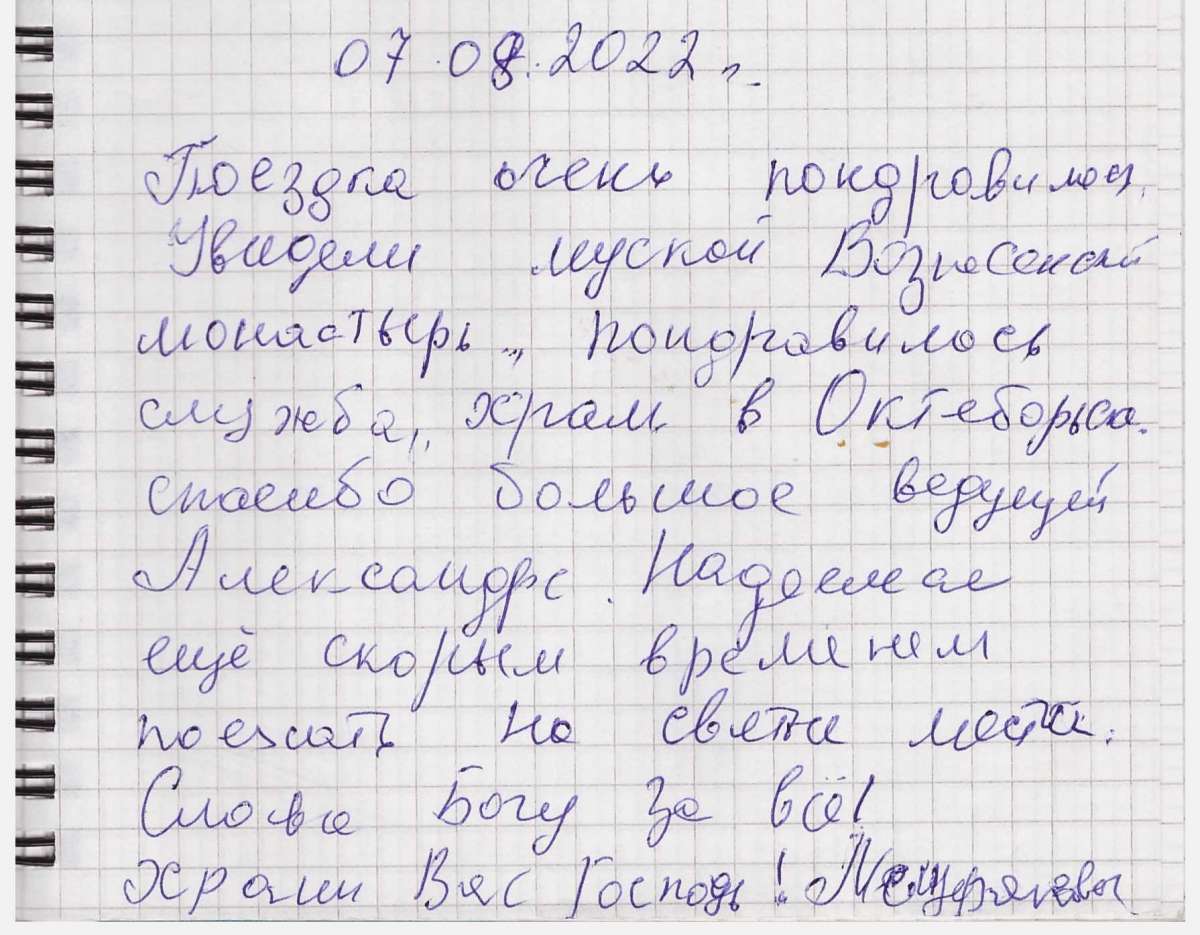 07.08.2022 г.
Поездка очень пондравилась.
Увидели муской Вознесенский
монастырь, пондравилось
служба, храм в Октеборьска.
спасибо большое ведущей
Александре. Надеемся
ещё скорым временем
поехать на святы места.
Слава Богу за всё!
Храни Вас Господь! Мещеряковы